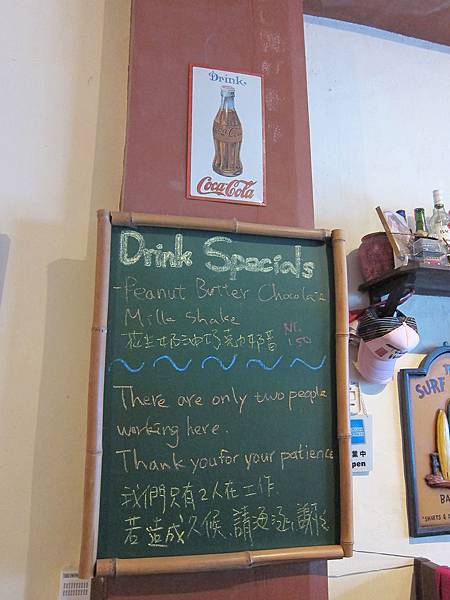 Drink
Coca-Cola
Drink Specials
-Peanut Butter Chocolate
Milk shake
花生奶油巧克力奶昔
NT.
150
There are only two people
working here.
Thank you for your patience
我們只有2人在工作.
若造成久候,請海涵,謝謝
業中
open
SURF